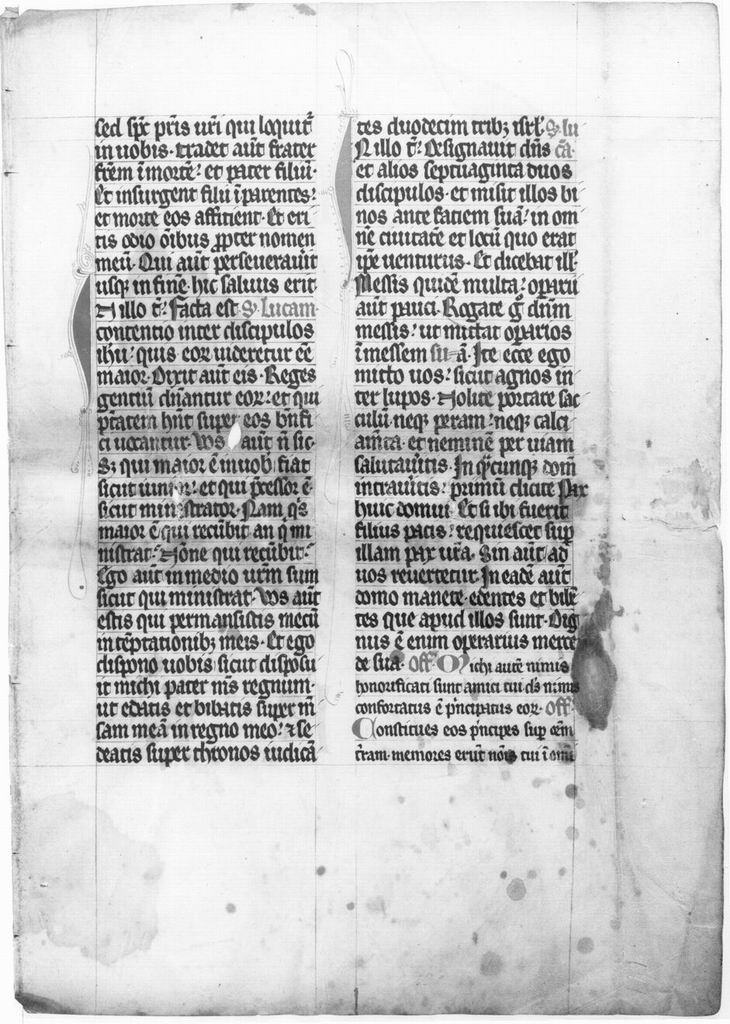 sed sp̄c pr̄is ur̄i qui loquit᷑
in uobis· tradet aūt frater
frēm ī mortē: et pater filiū·
Et insurgent filii ī parentes:
et morte eos afficient· Et eri
tis odio ōībus ꝓpter nomen
meū· Qui aūt perseuerauit
usqꝫ in finē· hic saluus erit
N illo t̄: Facta est S· Lucam·
contentio inter discipulos
ihū: quis eoꝝ uideretur eē
maior· Dixit aūt eis· Reges
gentiū dn̄antur eoꝝ: et qui
ptātem hn̄t super eos bn̄fi
ci uocantur· Uos aūt n̄ sic·
Sꝫ qui maior ē in uob᷒ fiat
sicut iunior: et qui p̄cessor ē·
sicut ministrator· Nam q̇s
maior ē qui recūbit an q̇ mi
nistrat· Nōne qui recūbit·
Ego aūt in medio ur̄m sum
sicut qui ministrat· Uos aūt
estis qui permansistis mecū
in tēptationibꝫ meis· Et ego
dispono uobis sicut disposu
it michi pater m̄s regnum·
ut edatis et bibatis super m̄
sam meā in regno meo: ⁊ se
deatis super thronos iudicā
tes duodecim tribꝫ isrl̄· S· lu
N illo t̄: Designauit dn̄s cā·
et alios septuaginta duos
discipulos· et misit illos bi
nos ante faciem suā: in om
nē ciuitatē et locū quo erat
ip̄e uenturus· Et dicebat ill᷒
Messis quidē multa: operarii
aūt pauci· Rogate g̊ dn̄m
messis: ut mittat oꝑarios
ī messem su ā· Ite ecce ego
mitto uos: sicut agnos in
ter lupos· Nolite portare sac
culū neqꝫ peram: neqꝫ calci
amēta· et neminē per uiam
salutaueritis· In q̄cunqꝫ dom
intraueritis: primū dicite Pax
huic domui· Et si ibi fuerit
filius pacis: requiescet suꝑ
illam pax ur̄a· Sin aūt ad
uos reuertetur· In eadē aūt
domo manete· edentes et bibē
tes que apud illos sunt· Dig
nus ē enim operarius merce
de sua· Off̄ Michi autē nimis
honorificati sunt amici tui d̄s nimis
confortatus ē p̄ncipatus eoꝝ· Off̄
Constitues eos p̄ncipes suꝑ oēm
t̄ram· memores erūt nōis tui ī omi